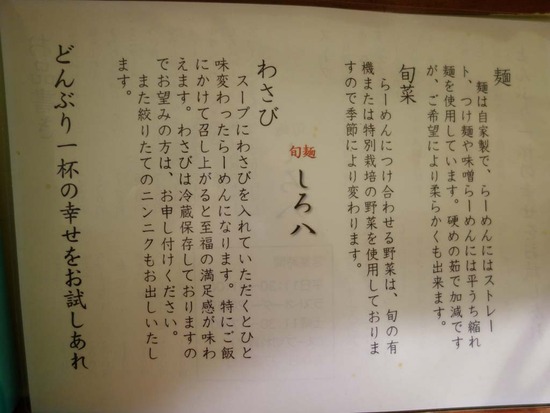 麺
麺は自家製で、らーめんにはストレー
ト、つけ麺や味噌らーめんには平うち縮れ
麺を使用しています。硬めの茹で加減です
が、ご希望により柔らかくも出来ます。
旬菜
らーめんにつけ合わせる野菜は、旬の有
機または特別栽培の野菜を使用しておりま
すので季節により変わります。
旬麺 しろ八
わさび
スープにわさびを入れていただくとひと
味変わったらーめんになります。特にご飯
にかけて召し上がると至福の満足感が味わ
えます。わさびは冷蔵保存しておりますの
でお望みの方は、お申し付けください。
また絞りたてのニンニクもお出しいたし
ます。
どんぶり一杯の幸せをお試しあれ